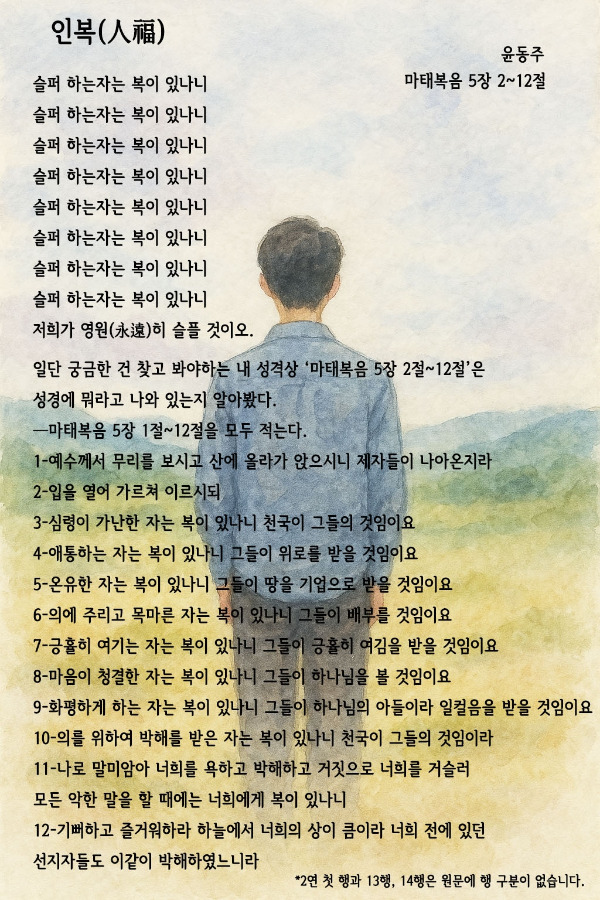 인복(人福)
윤동주
마태복음 5장 2~12절
슬퍼 하는자는 복이 있나니
슬퍼 하는자는 복이 있나니
슬퍼 하는자는 복이 있나니
슬퍼 하는자는 복이 있나니
슬퍼 하는자는 복이 있나니
슬퍼 하는자는 복이 있나니
슬퍼 하는자는 복이 있나니
슬퍼 하는자는 복이 있나니
저희가 영원(永遠)히 슬플 것이오.
일단 궁금한 건 찾고 봐야하는 내 성격상 ‘마태복음 5장 2절~12절’은
성경에 뭐라고 나와 있는지 알아봤다.
—마태복음 5장 1절~12절을 모두 적는다.
1-예수께서 무리를 보시고 산에 올라가 앉으시니 제자들이 나아온지라
2-입을 열어 가르쳐 이르시되
3-심령이 가난한 자는 복이 있나니 천국이 그들의 것임이요
4-애통하는 자는 복이 있나니 그들이 위로를 받을 것임이요
5-온유한 자는 복이 있나니 그들이 땅을 기업으로 받을 것임이요
6-의에 주리고 목마른 자는 복이 있나니 그들이 배부를 것임이요
7-긍휼히 여기는 자는 복이 있나니 그들이 긍휼히 여김을 받을 것임이요
8-마음이 청결한 자는 복이 있나니 그들이 하나님을 볼 것임이요
9-화평하게 하는 자는 복이 있나니 그들이 하나님의 아들이라 일컬음을 받을 것임이요
10-의를 위하여 박해를 받은 자는 복이 있나니 천국이 그들의 것임이라
11-나로 말미암아 너희를 욕하고 박해하고 거짓으로 너희를 거슬러
모든 악한 말을 할 때에는 너희에게 복이 있나니
12-기뻐하고 즐거워하라 하늘에서 너희의 상이 큼이라 너희 전에 있던
선지자들도 이같이 박해하였느니라
*2연 첫 행과 13행, 14행은 원문에 행 구분이 없습니다.